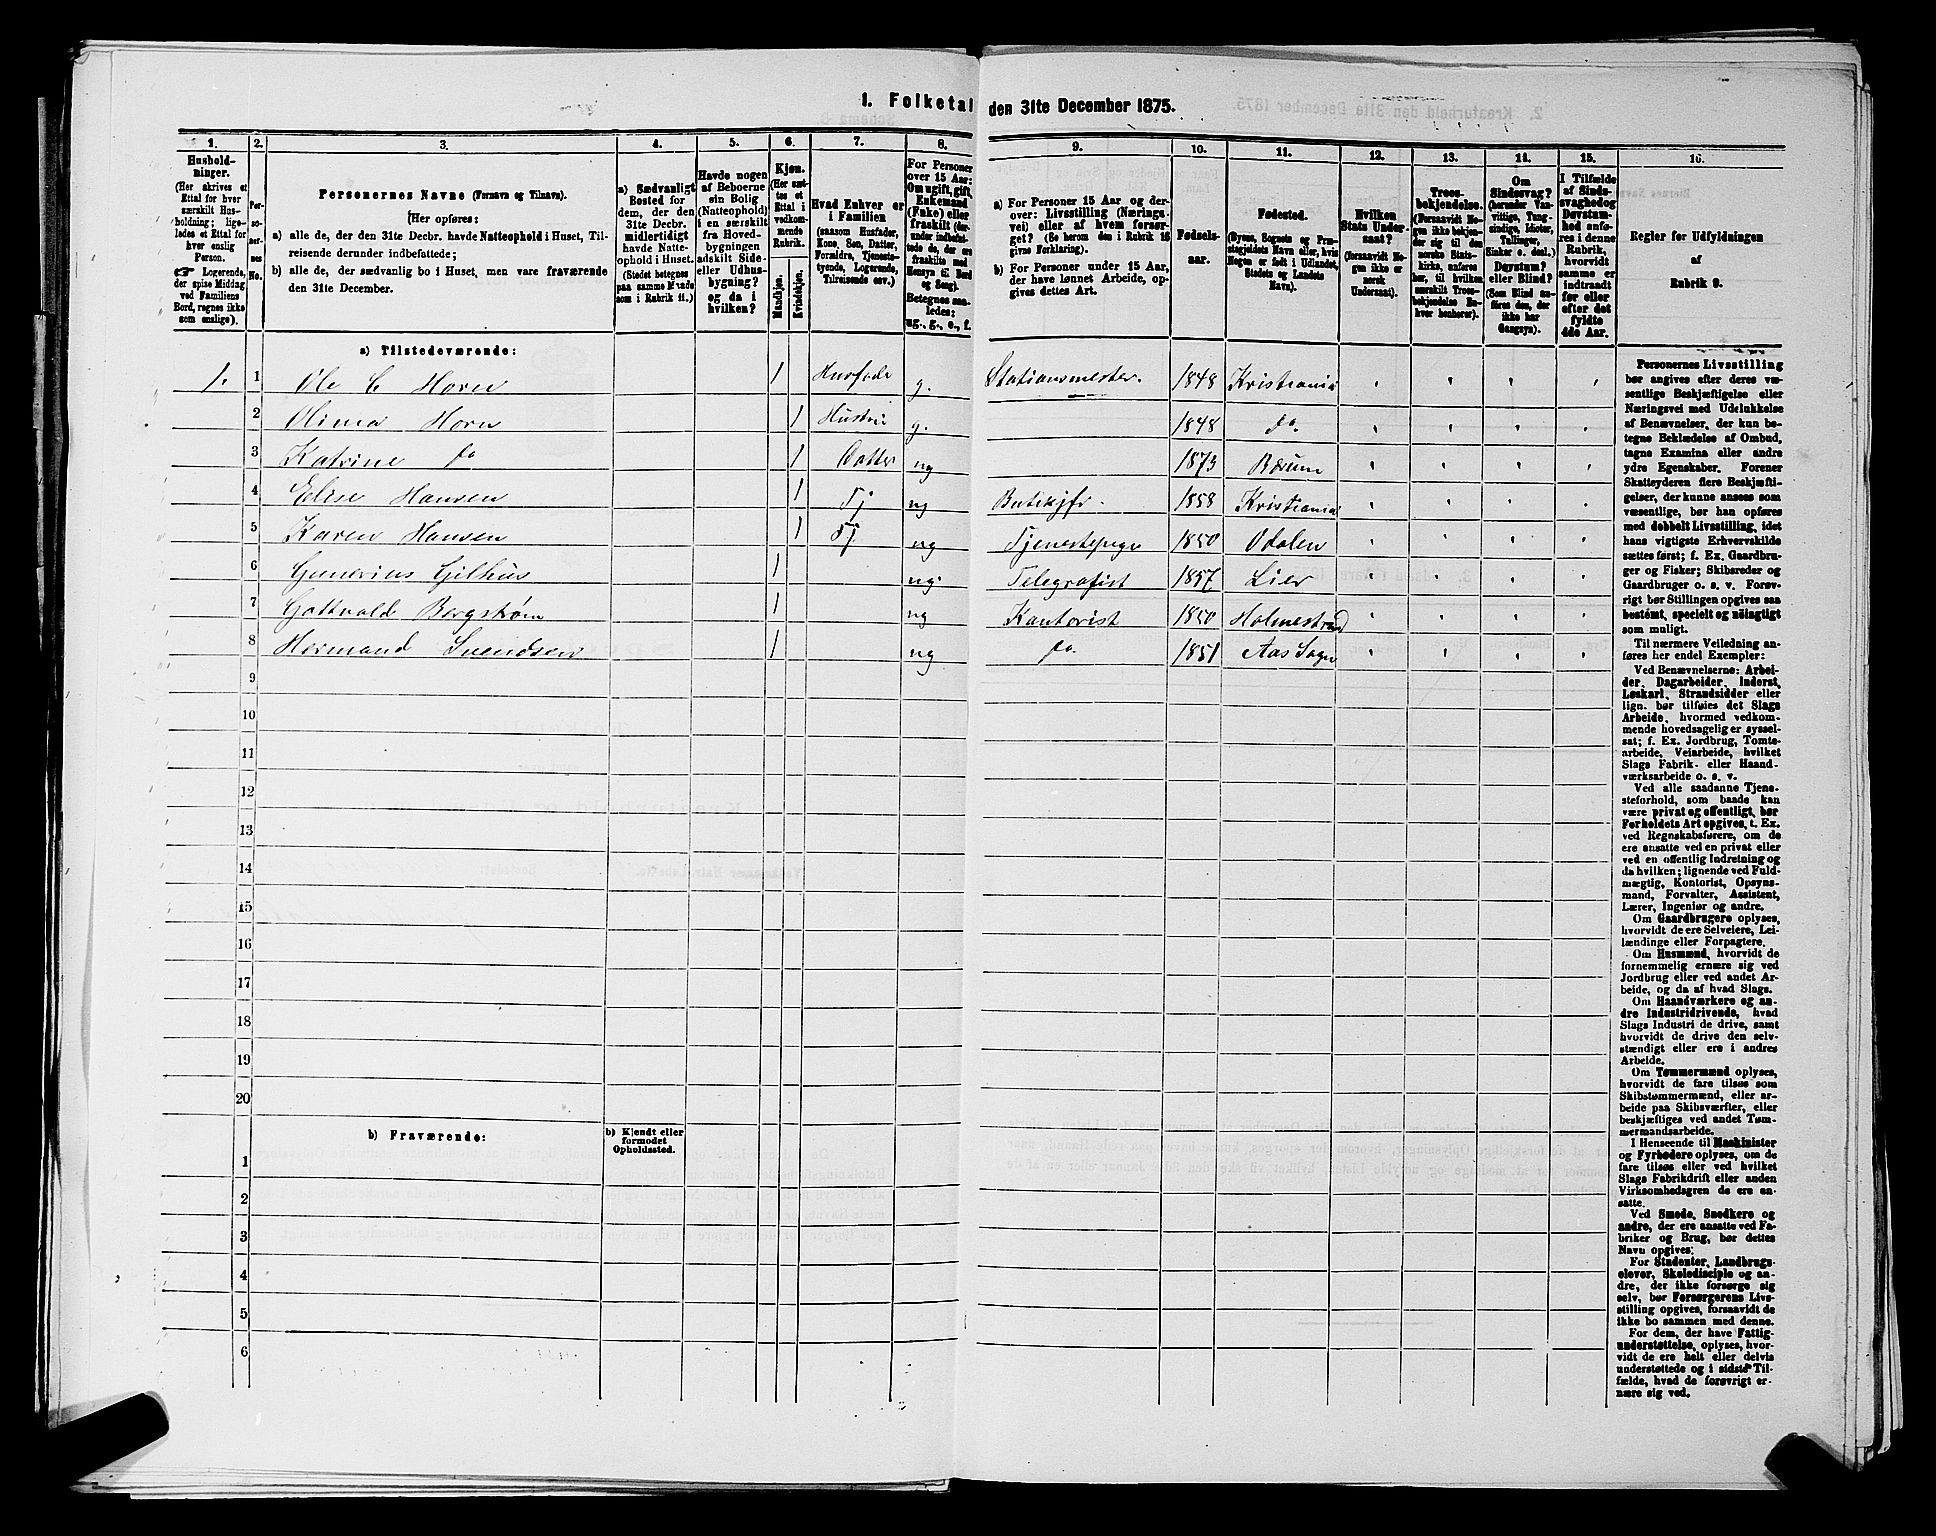 1. Folketal den 31te December 1875.
1. 2. 3. 4. 5. 6. 7. 8. 9. 10. 11. 12. 13. 14. 15. 16.
Husholdninger.
(Her skrives et
Ettal for hver
særskilt Husholdning; ligeledes et Ettal for
hver enslig
Person.
☞ Logerende,
der spise Middag
ved Familiens
Bord, regnes ikke
som enslige).
Personernes No.
Personernes Navne (Fornavn og Tilnavn).
(Her opføres:
a) alle de, der den 31te Decbr. havde Natteophold i Huset, Tilreisende derunder indbefattede;
b) alle de, der sædvanlig bo i Huset, men vare fraværende
den 31te December.
a) Sædvanligt
Bosted for
dem, der den
31te Decbr.
midlertidigt
havde Natteophold i Huset.
(Stedet betegnes
paa samme Maade
som i Rubrik 11.)
Havde nogen
af Beboerne
sin Bolig
(Natteophold)
i en særskilt
fra Hovedbygningen
adskilt Side-
eller Udhusbygning?
og da i
hvilken?
Kjøn.
(Her sættes et
Ettal i
vedkommende
Rubrik.
Mandkjøn.
Kvindekjøn.
Hvad Enhver er
i Familien
(saasom Husfader,
Kone, Søn, Datter,
Forældre, Tjenestetyende, Logerende,
Tilreisende osv.)
For Personer
over 15 Aar:
Om ugift, gift,
Enkemand
(Enke) eller
fraskilt (derunder indbefattede de, der ere
fraskilte med
Hensyn til Bord
og Seng).
Betegnes saaledes:
ug., g., e., f.
a) For Personer 15 Aar og derover: Livsstilling (Næringsvei) eller af hvem forsørget? (Se herom den i Rubrik 16
givne Forklaring).
b) For Personer under 15 Aar,
der have lønnet Arbeide, opgives dettes Art.
Fødselsaar.
Fødested.
(Byens, Sognets og Præstegjeldets Navn eller, hvis
Nogen er født i Udlandet,
Stedets og Landets
Navn).
Hvilken
Stats Undersaat?
(forsaavidt Nogen ikke er
norsk
Undersaat).
Troesbekjendelse.
(Forsaavidt Nogen ikke bekjender sig til den
norske Statskirke, anføres
her, til hvilken
særskilt Troesbekjendelse Enhver henhører).
Om
Sindssvag?
(herunder Vanvittige, Tungsindige, Idioter,
Tullinger,
Sinker o. desl.)
Døvstum?
eller Blind?
(Som Blind anføres den, der
ikke har
Gangsyn).
I Tilfælde
af Sindssvaghed og
Døvstumhed anføres i denne
Rubrik,
hvorvidt
samme er
indtraadt
før eller
efter det
fyldte
4de Aar.
Regler for Udfyldningen
af
Rubrik 9.
a) Tilstedeværende:
1. 1 Ole C Horn 1 Husfader g. Stationsmester. 1848 Kristiania
2 Olima Horn 1 Hustru g. 1848 do.
3 Katrine do 1 Datter ug 1873 Bærum
4 Elise Hansen 1 Tj ug Butikjfr. 1858 Kristiania
5 Karen Hansen 1 Tj ug Tjenestepige 1850 Odalen
6 Gunerius Gilhus 1 ug. Telegrafist 1857 Lier
7 Gottvald Bergstrøm 1 ug Kontorist 1850 Holmestrand
8 Hermand Svendsen 1 ug do. 1851 Aas Sogn
9
10
11
12
13
14
15
16
17
18
19
20
b) Fraværende:
b) Kjendt eller
formodet
Opholdssted.
1
2
3
4
5
6
Personernes Livsstilling
bør angives efter deres væsentlige Beskjæftigelse eller
Næringsvei med Udelukkelse
af Benævnelser, der kun betegne Beklædelse af Ombud,
tagne Examina eller andre
ydre Egenskaber. Forener
Skatteyderen flere Beskjæftigelser, der kunne ansees som
væsentlige, bør han opføres
med dobbelt Livsstilling, idet
hans vigtigste Erhvervskilde
sættes først; f. Ex. Gaardbruger og Fisker; Skibsreder og
Gaardbruger o. s. v. Forøvrigt bør Stillingen opgives saa
bestemt, specielt og nöiagtigt
som muligt.
Til nærmere Veiledning anføres her endel Exempler:
Ved Benævnelserne: Arbeider, Dagarbeider, Inderst,
Løskarl, Strandsidder eller
lign. bør tilføies det Slags
Arbeide, hvormed vedkommende hovedsagelig er sysselsat; f. Ex. Jordbrug, Tomtearbeide, Veiarbeide, hvilket
Slags Fabrik- eller Haandværksarbeide o. s. v.
Ved alle saadanne Tjenesteforhold, som baade kan
være privat og offentligt, bør
Forholdets Art opgives, t. Ex.
ved Regnskabsførere, om de
ere ansatte ved en privat eller
ved en offentlig Indretning og
da hvilken; lignende ved Fuldmægtig, Kontorist, Opsynsmand, Forvalter, Assistent,
Lærer, Ingeniør og andre.
Om Gaardbrugere oplyses,
hvorvidt de ere Selveiere, Leilændinge eller Forpagtere.
Om Husmænd, hvorvidt de
fornemmelig ernære sig ved
Jordbrug eller ved andet Arbeide, og da af hvad Slags.
Om Haandværkere og andre Industridrivende, hvad
Slags Industri de drive, samt
hvorvidt de drive den selvstændigt eller ere i andres
Arbeide.
Om Tømmermænd oplyses,
hvorvidt de fare tilsøs som
Skibstømmermænd, eller arbeide paa Skibsværfter, eller
beskjæftiges ved andet Tømmermandsarbeide.
I Henseende til Maskinister
og Fyrbødere oplyses, om de
fare tilsøs eller ved hvilket
Slags Fabrikdrift eller anden
Virksomhedsgren de ere ansatte.
Ved Smede, Snedkere og
andre, der ere ansatte ved Fabriker og Brug, bør dettes
Navn opgives;
For Studenter, Landbrugselever, Skoledisciple og andre, der ikke forsørge sig
selv, bør Forsørgerens Livsstilling opgives, forsaavidt de
ikke bo sammen med denne.
For dem, der have Fattigunderstøttelse, oplyses, hvorvidt de ere helt eller delvis
understøttede og i sidste Tilfælde, hvad de forøvrigt ernære sig ved.